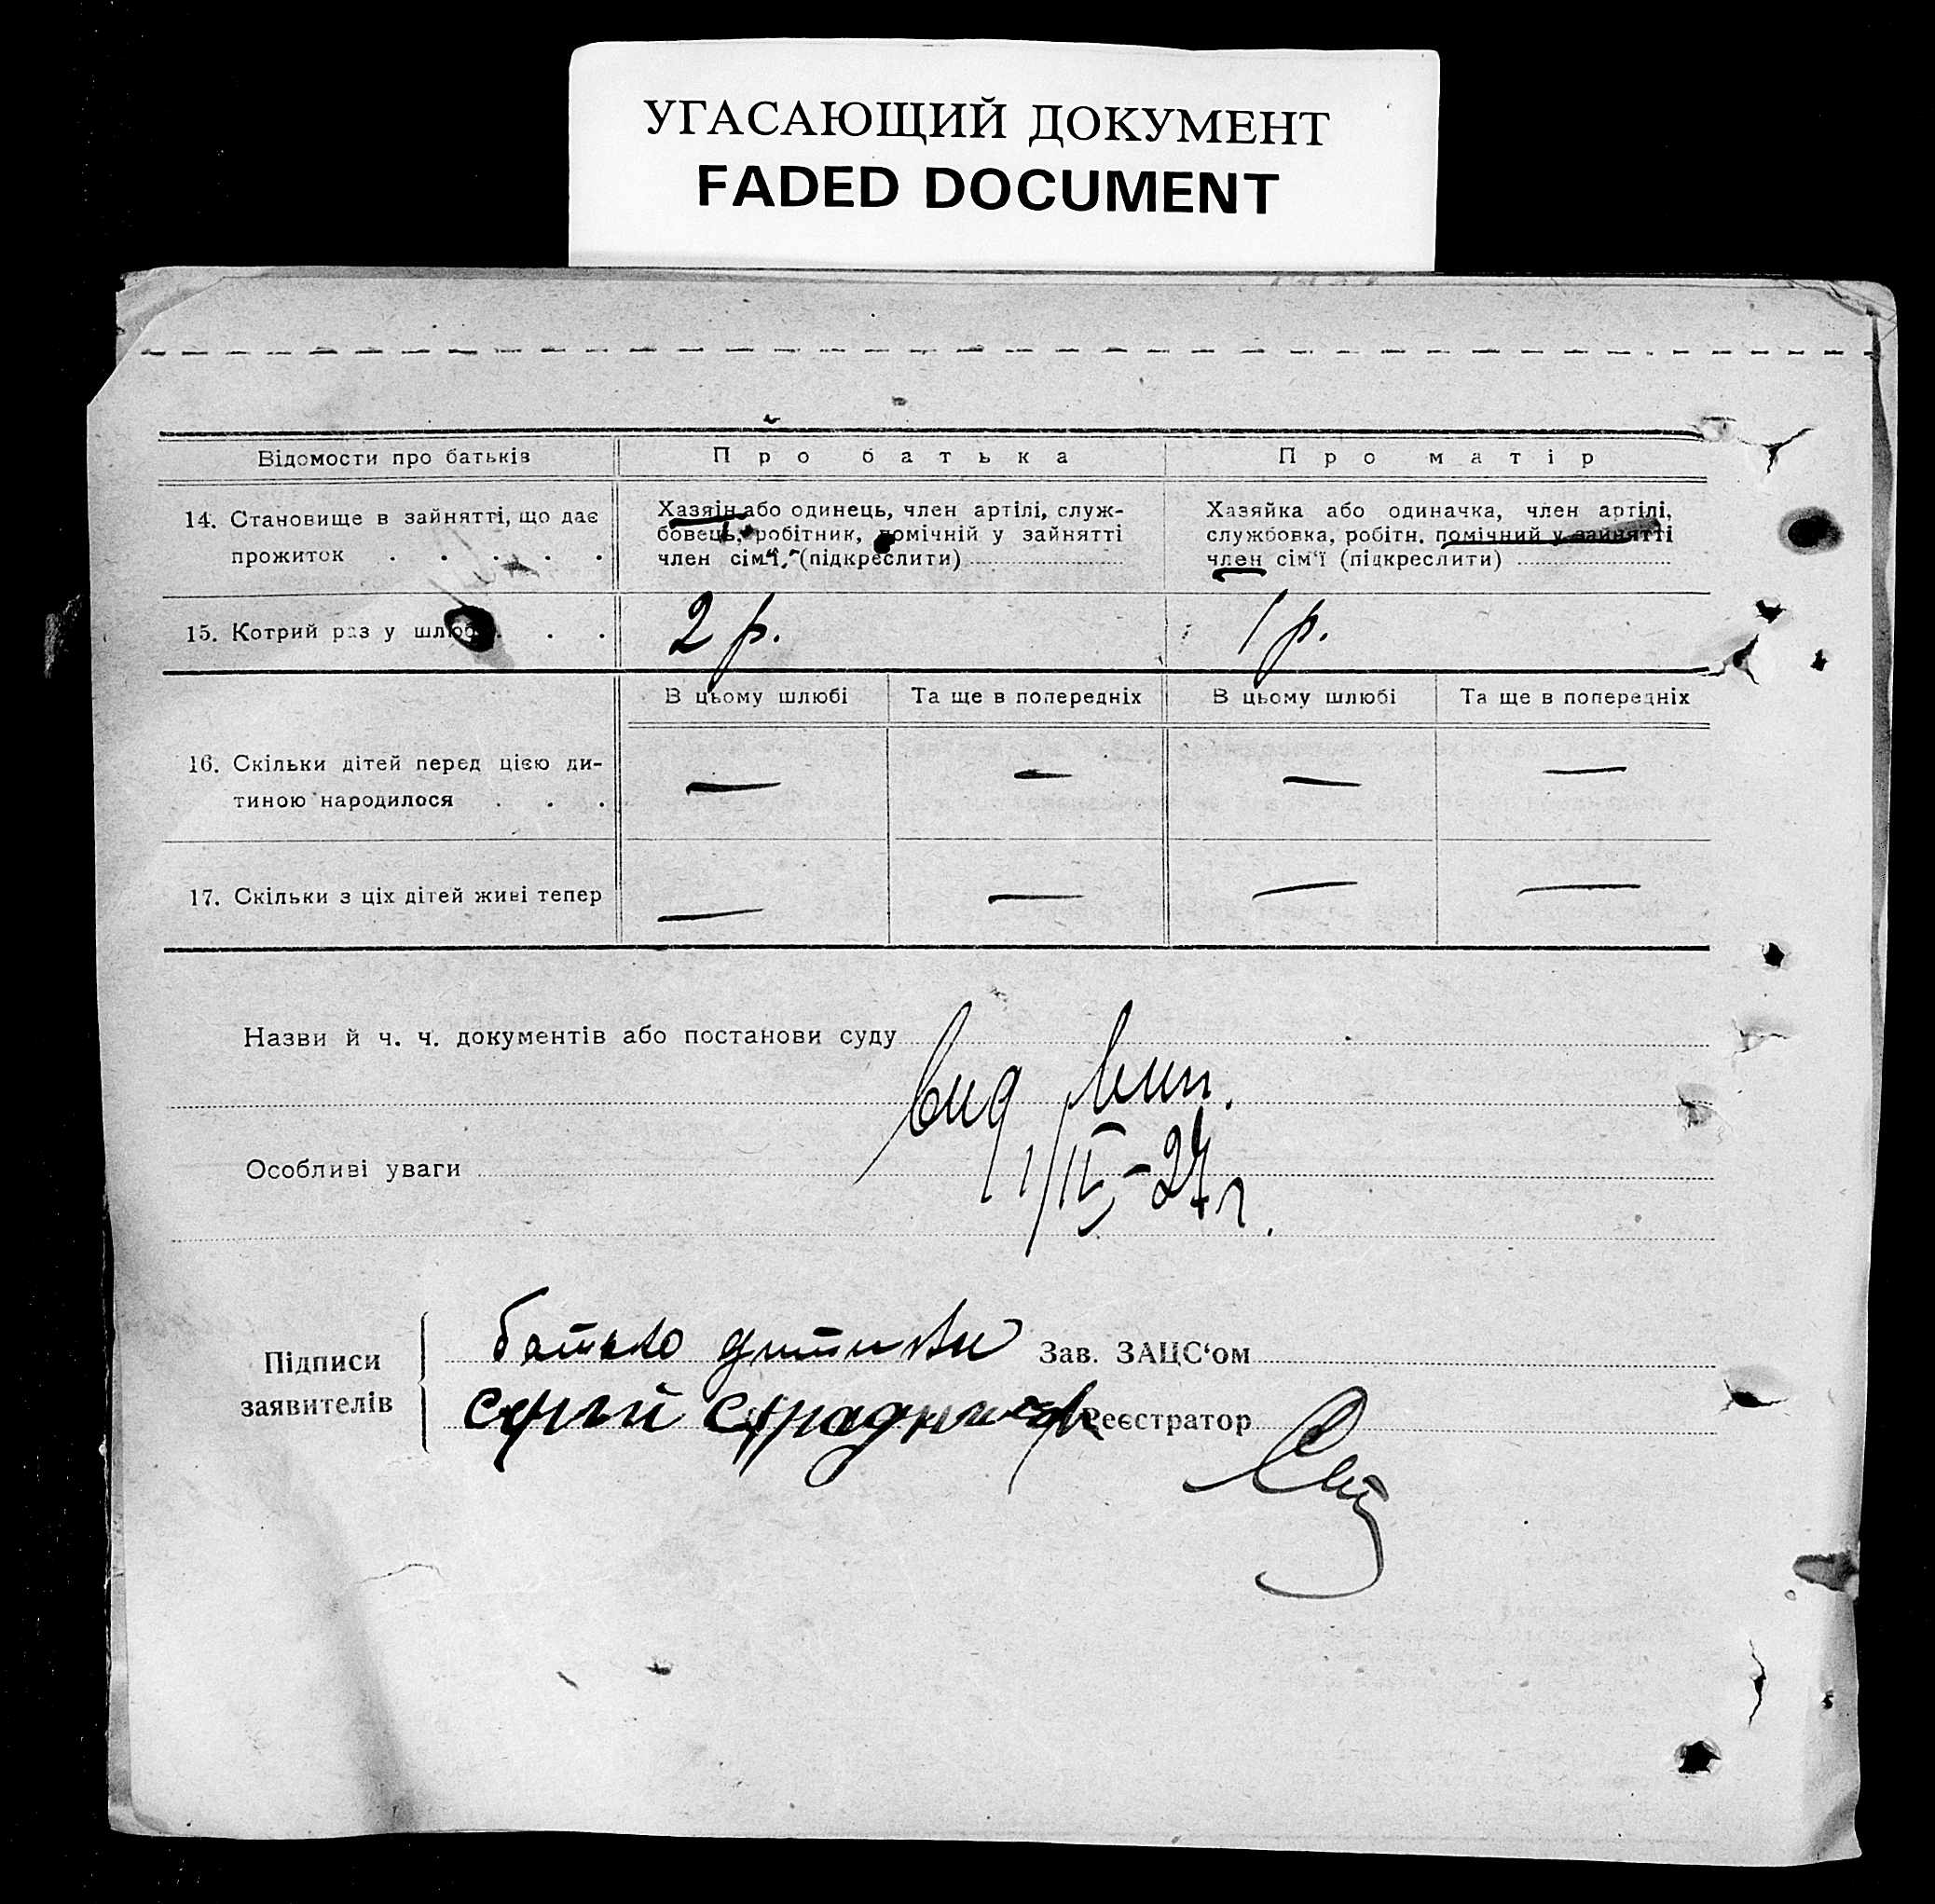 УГАСАЮЩИЙ ДОКУМЕНТ
FADED DOCUMENT
Відомости про батьків
Про батька
Про матір
14. Становище в зайнятті, що дає
прожиток . . . . .
Хазяін або одинець, член артілі, служ-
бовець, робітник, помічній у зайнятті
член сім'ї, (підкреслити)
Хазяйка або одиначка, член артілі,
службовка, робітн. помічний у зайнятті
член сім'ї (підкреслити)
15. Котрий раз у шлюбі . . .
2 р.
1 р.
В цьому шлюбі
Та ще в попередніх
В цьому шлюбі
Та ще в попередніх
16. Скільки дітей перед цією ди-
тиною народилося . . .
— — — —
17. Скільки з ціх дітей живі тепер
— — — —
Назви й ч. ч. документів або постанови суду
вид
Особливі уваги
Підписи
заявителів
батько дитини
Зав. ЗАЦС'ом
сергій
Реєстратор